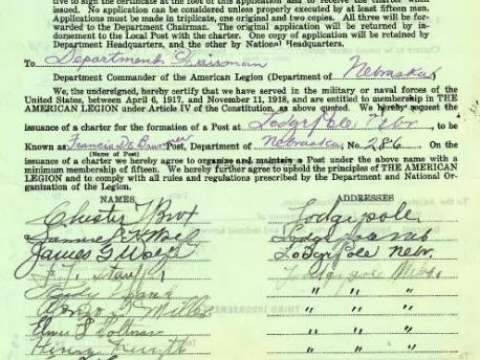 tive to sign the certificate at the foot of this application and to receive the charter when
issued. No application can be considered unless properly executed by at least fifteen men.
Applications must be made in triplicate, one original and two copies. All three will be for-
warded to the Department Chairman. The original application will be returned by in-
dorsement to the Local Post with the charter. One copy of application will be retained by
Department Headquarters, and the other by National Headquarters.
To Department Chairman
Department Commander of the American Legion (Department of Nebraska)
We, the undersigned, hereby certify that we have served in the military or naval forces of the
United States, between April 6, 1917, and November 11, 1918, and are entitled to membership in THE
AMERICAN LEGION under Article IV of the Constitution, as above quoted. We hereby request the
issuance of a charter for the formation of a Post at Lodgepole Nebr, to be
Known as: Francis Post, Department of Nebraska, No. 286. On the
(Name of Post)
issuance of a charter we hereby agree to organize and maintain a Post under the above name with a
minimum membership of fifteen. We hereby further agree to uphold the principles of THE AMERICAN
LEGION and to comply with all rules and regulations prescribed by the Department and National Or-
ganization of the Legion.
NAMES ADDRESSES
Chester Lodgepole
Lodgepole Neb
James G Wolf Lodgepole Nebr.
Lodgepole Nebr.
" " "
Miller " " "
Elmer " " "
Henry " " "